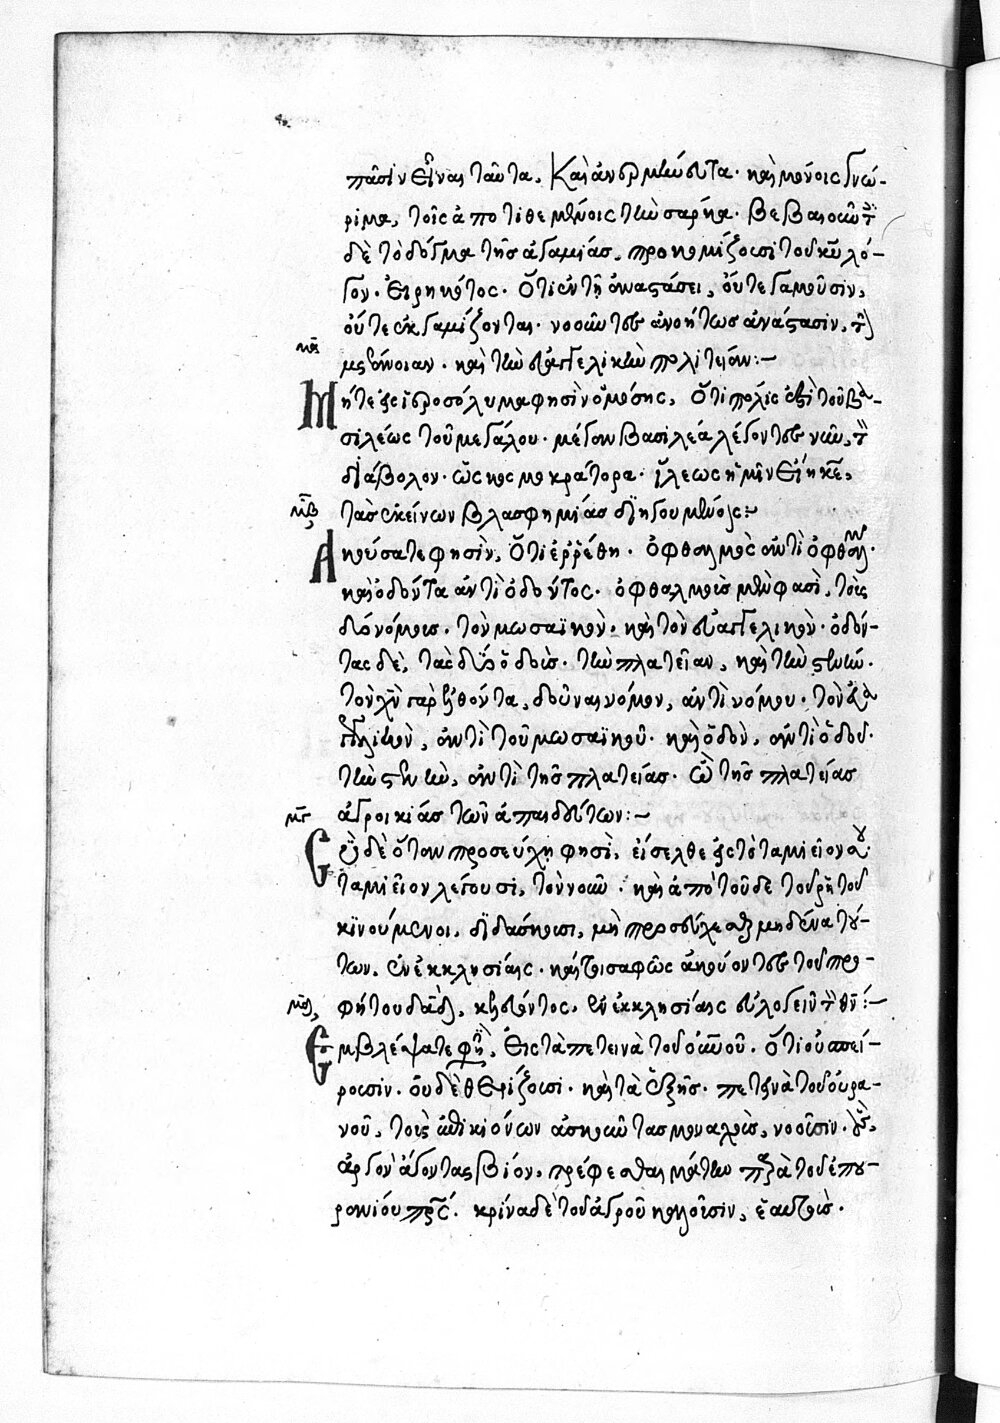 πᾶσιν εἶναι ταῦτα. καὶ ἀνερμήνευτα· καὶ μόνοις γνώ-
ριμα, τοῖς ἀποτιθεμένοις τὴν σάρκα· βεβαιοῦντ
δὲ τὸ δόγμα τῆς ἀγαμίας, προκομίζουσι τοῦ κυ λό-
γον· εἰρηκότος· ὅτι ἐν τῇ ἀναστάσει, οὔτε γαμοῦσιν,
οὔτε ἐκγαμίζονται· νοοῦντες ἀνοήτως ἀνάστασιν, τὴν
μετάνοιαν· καὶ τὴν εὐαγγελικὴν πολιτείαν:~
μα
Μήτε εἰς ἱεροσόλυμα φησὶν ὀμόσῃς, ὅτι πόλις ἐστὶ τοῦ βα-
σιλέως τοῦ μεγάλου· μέγαν βασιλέα λέγοντες νῦν, τὸν
διάβολον· ὡς κοσμοκράτορα· ἵλεως ἡμῖν εἴη κε,
μβ τὰς ἐκείνων βλασφημίας διηγουμένοις:~
Ἀκούσατε φησὶν, ὅτι ἐρρέθη· ὀφθαλμὸς ἀντὶ ὀφθαλμ·
καὶ ὀδόντα ἀντὶ ὀδόντος· ὀφθαλμοὺς μὲν φασὶ, τοὺς
δύο νόμους· τὸν μωσαϊκὸν, καὶ τὸν εὐαγγελικὸν· ὀδόν-
τας δὲ, τὰς δύο ὁδούς· τὴν πλατεῖαν, καὶ τὴν στενήν·
τὸν χν παρελθόντα, δοῦναι νόμον, ἀντὶ νόμου· τὸν εὐα
γγελικὸν, ἀντὶ τοῦ μωσαϊκοῦ· καὶ ὁδὸν, ἀντὶ ὁδοῦ·
τὴν στενὴν, ἀντὶ τῆς πλατείας· ὢ τῆς πλατείας
μγ ἀγροικίας τῶν ἀπαιδεύτων:~
Σὺ δὲ ὅταν προσεύχῃ φησὶ, εἴσελθε εἰς τὸ ταμιεῖον σου·
ταμιεῖον λέγουσι, τὸν νοῦν· καὶ ἀπὸ τοῦδε τοῦ ῥητοῦ
κινούμενοι, διδάσκουσι, μὴ προσεύχεσθαι μηδένα τού-
των, ἐν ἐκκλησίαις· καίτοι σαφῶς ἀκούοντες τοῦ προ-
μδ φήτου δαδ, κελεύοντος, ἐν ἐκκλησίαις εὐλογεῖν τὸν θν:~
Ἐμβλέψατε φησὶ, εἰς τὰ πετεινὰ τοῦ οὐνοῦ· ὅτι οὐ σπεί-
ρουσιν· οὐδὲ θερίζουσι· καὶ τὰ ἑξῆς· πετεινὰ τοῦ οὐρα-
νοῦ, τοὺς

ἄργον ἄγοντας βίον, τρέφεσθαι

κρίνα δὲ τοῦ ἀγροῦ καλοῦσιν, ἑαυτούς·